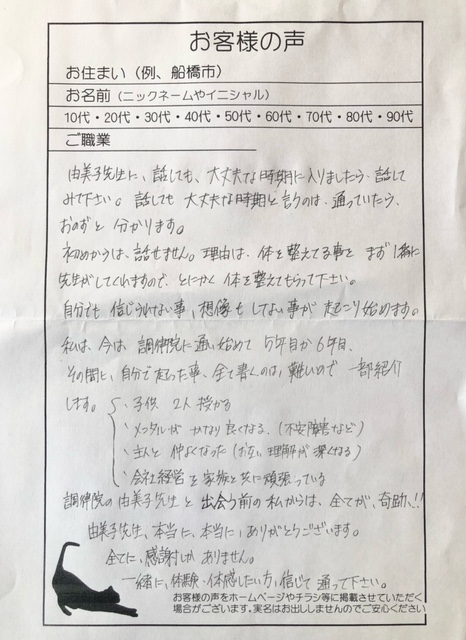 お客様の声
お住まい（例、船橋市）
お名前（ニックネームやイニシャル）
10代・20代・30代・40代・50代・60代・70代・80代・90代
ご職業
由美子先生に、話しても、大丈夫な時期に入りましたら、話して
みて下さい。話しても大丈夫な時期と言うのは、通っていたら、
おのずと分かります。
初めからは、話せません。理由は、体を整えてる事をまず1番に
先生がしてくれますので、とにかく体を整えてもらって下さい。
自分でも信じられない事、想像もしてない事が起こり始めます。
私は、今は、調律院に通い始めて5年目か6年目、
その間に、自分で起った事、全て書くのは、難しいので一部紹介
します。
・子供2人授かる
・メンタルがかなり良くなる。（不安障害など）
・主人と仲よくなった（お互い理解が深くなる）
・会社経営を家族と共に頑張っている
調律院の由美子先生と出会う前の私からは、全てが、奇助、!!
由美子先生、本当に、本当に、ありがとうございます。
全てに、感謝しかありません。
一緒に、体験・体感したい方、信じて通って下さい。
お客様の声をホームページやチラシ等に掲載させていただく
場合がございます。実名はお出ししませんのでご安心ください